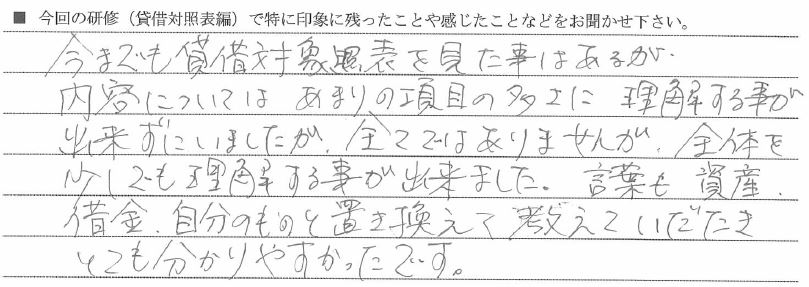 ■ 今回の研修（貸借対照表編）で特に印象に残ったことや感じたことなどをお聞かせ下さい。
今までも貸借対象照表を見た事はあるが、
内容については あまりの項目の多さに 理解する事が
出来ずにいましたが、全てではありませんが、全体を
少しでも理解する事が出来ました。言葉も 資産、
借金、自分のものと置き換えて考えていだたき
とても分かりやすかったです。